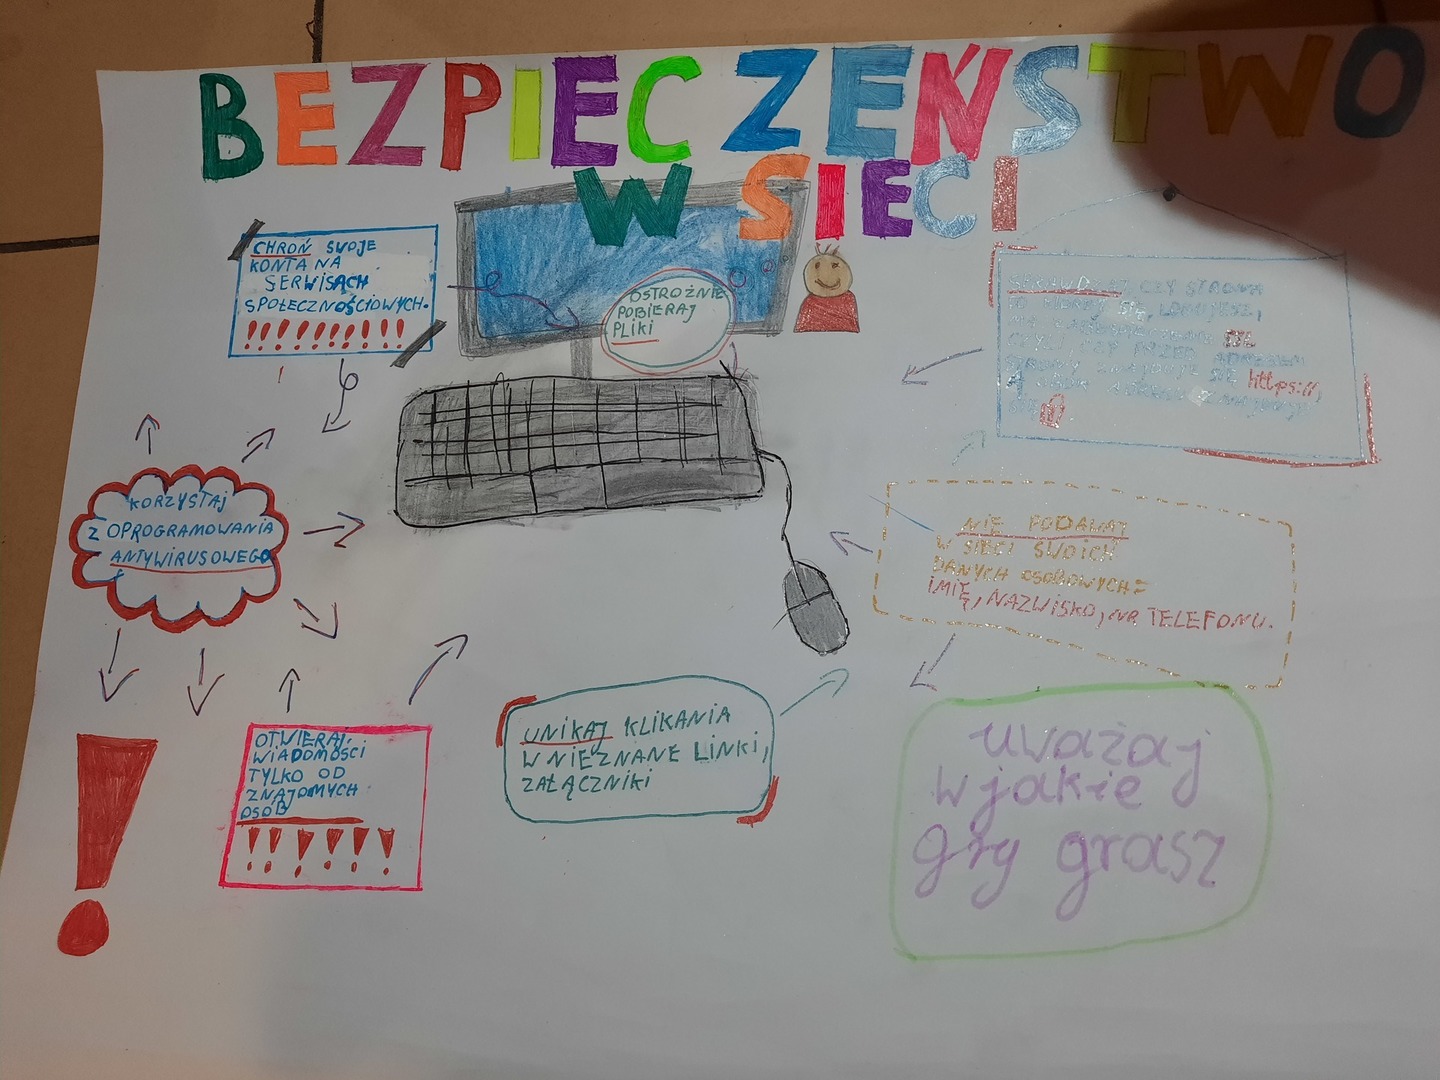 BEZPIECZEŃSTWO
W SIECI
CHROŃ SWOJE
KONTA NA
SERWISACH
SPOŁECZNOŚCIOWYCH.
!!!!!!!!!
OSTROŻNIE
POBIERAJ
PLIKI
CZY STRONA
LOGUJESZ,
SSL
CZYLI, CZY PRZED ADRESEM
STRONY ZNAJDUJE SIĘ https://,
A OBOK
KORZYSTAJ
Z OPROGRAMOWANIA
ANTYWIRUSOWEGO
NIE PODAWAJ
W SIECI SWOICH
DANYCH OSOBOWYCH:
IMIĘ, NAZWISKO, NR TELEFONU.
OTWIERAJ
WIADOMOŚCI
TYLKO OD
ZNAJOMYCH
OSÓB
!!!!!!
UNIKAJ KLIKANIA
W NIEZNANE LINKI,
ZAŁĄCZNIKI
uważaj
w jakie
gry grasz
!